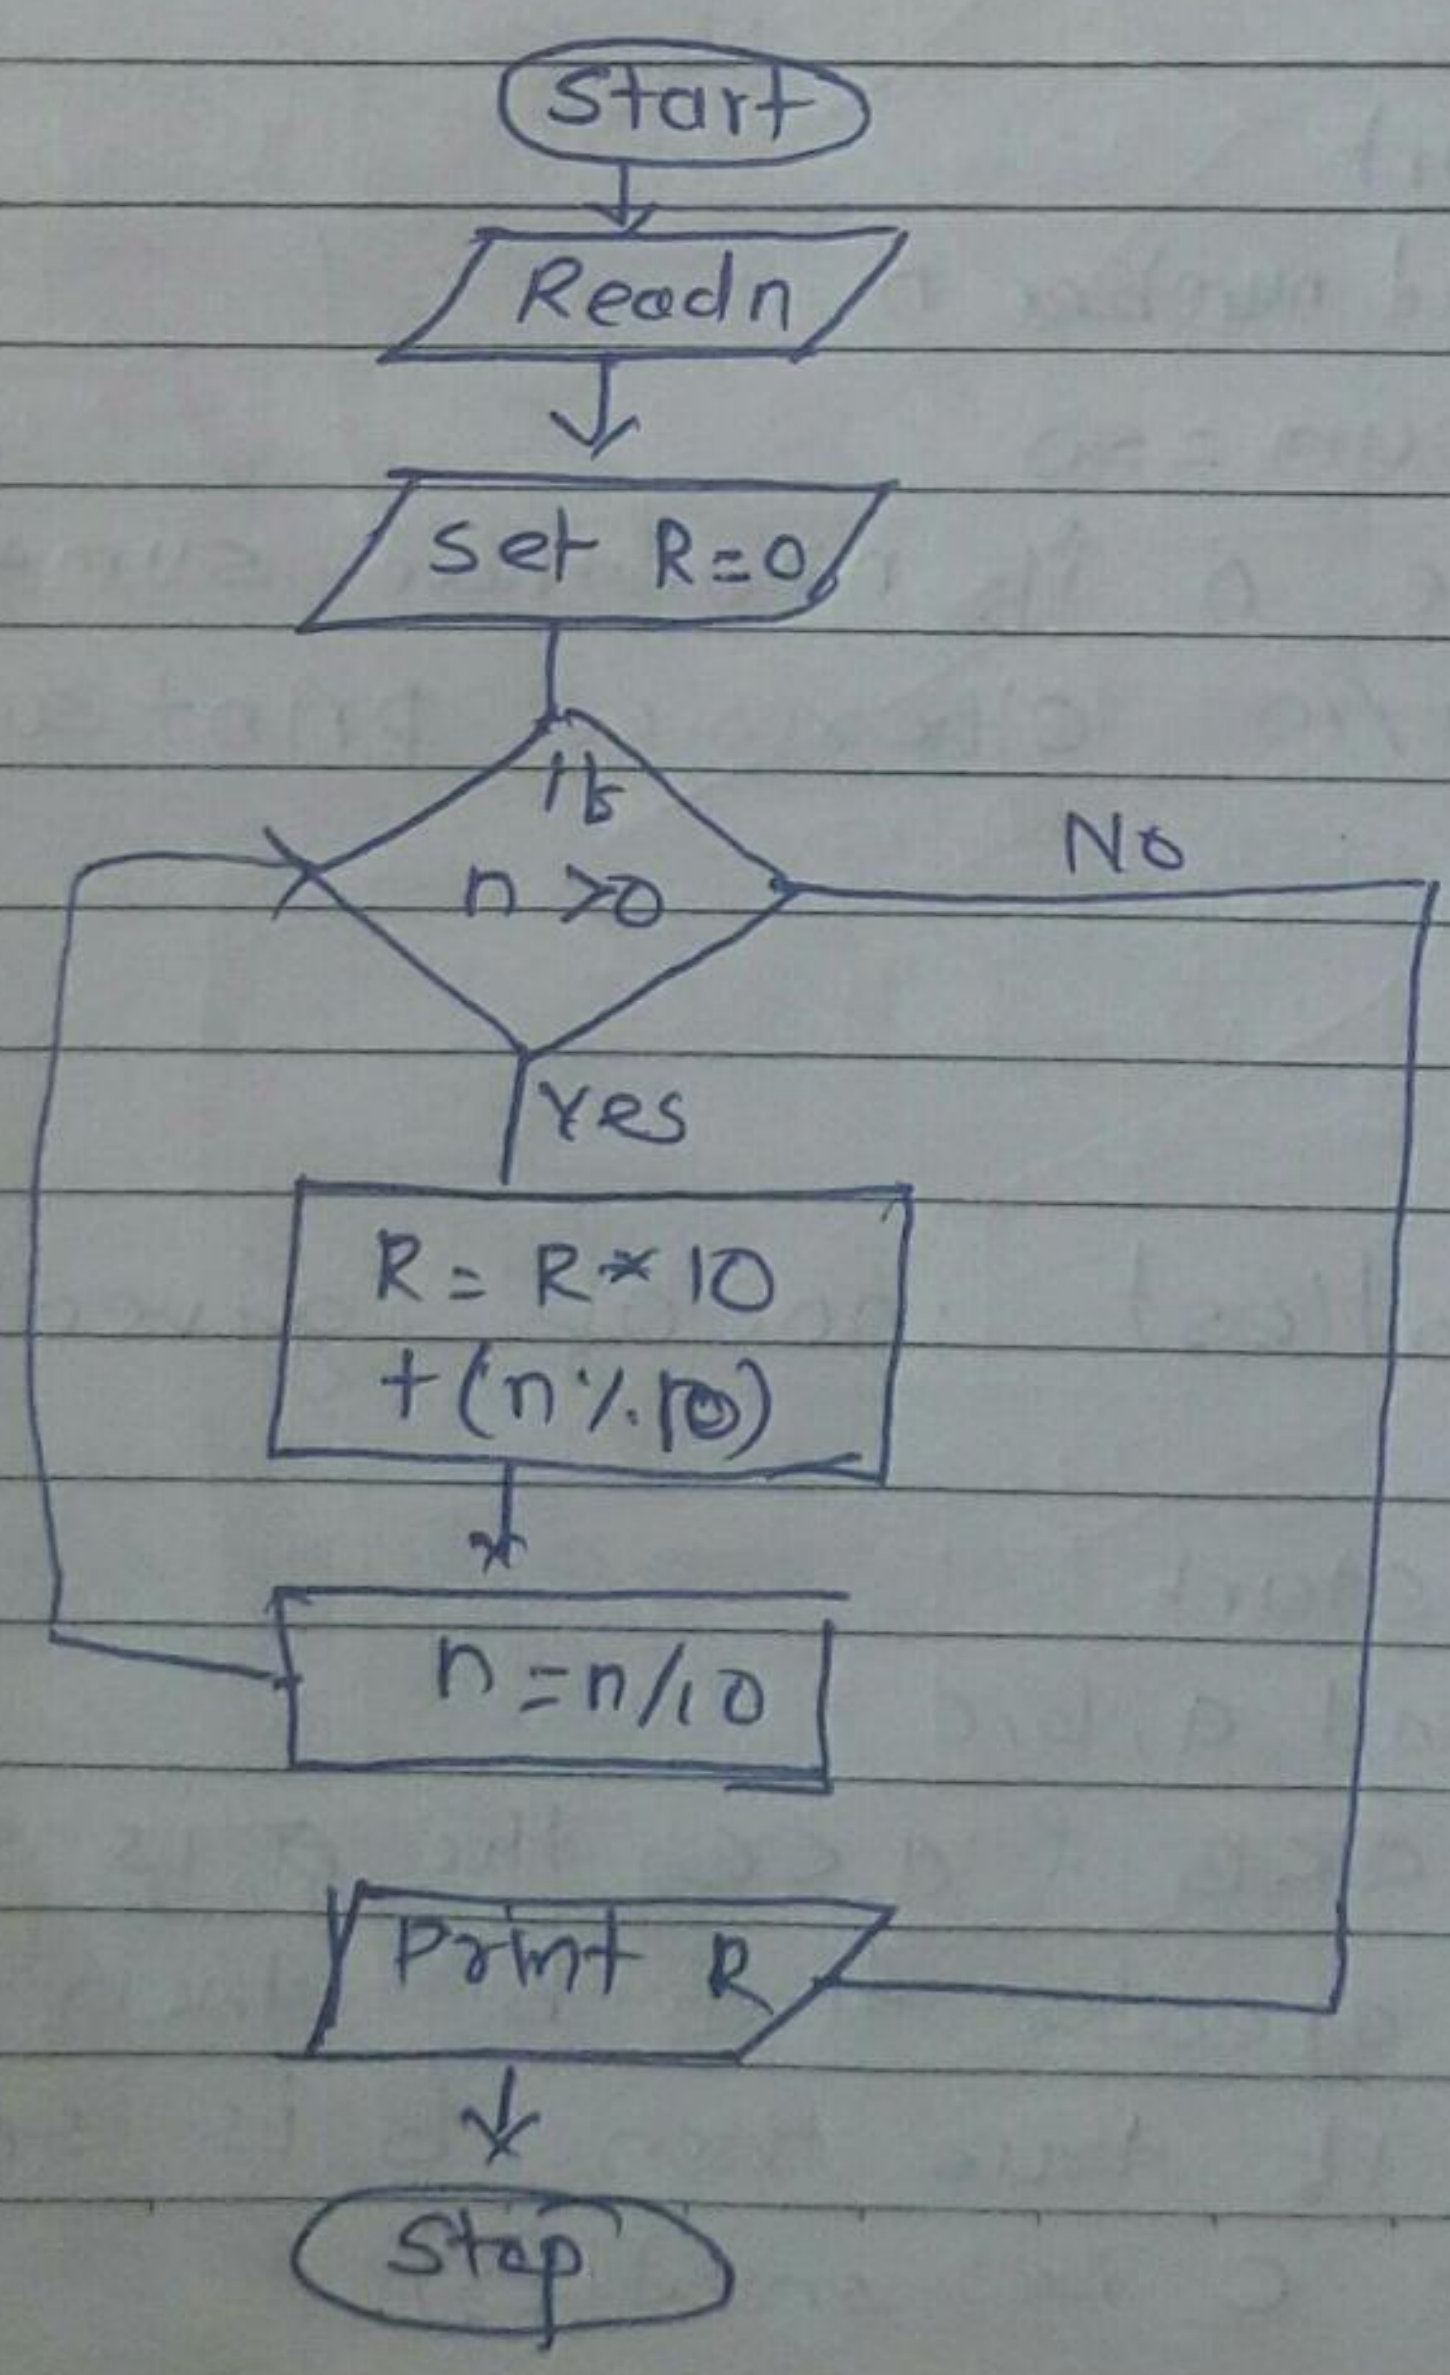 Start
Read n
Set R=0
if
n >0
No
Yes
R= R*10
+(n%10)
n=n/10
Print R
Stop